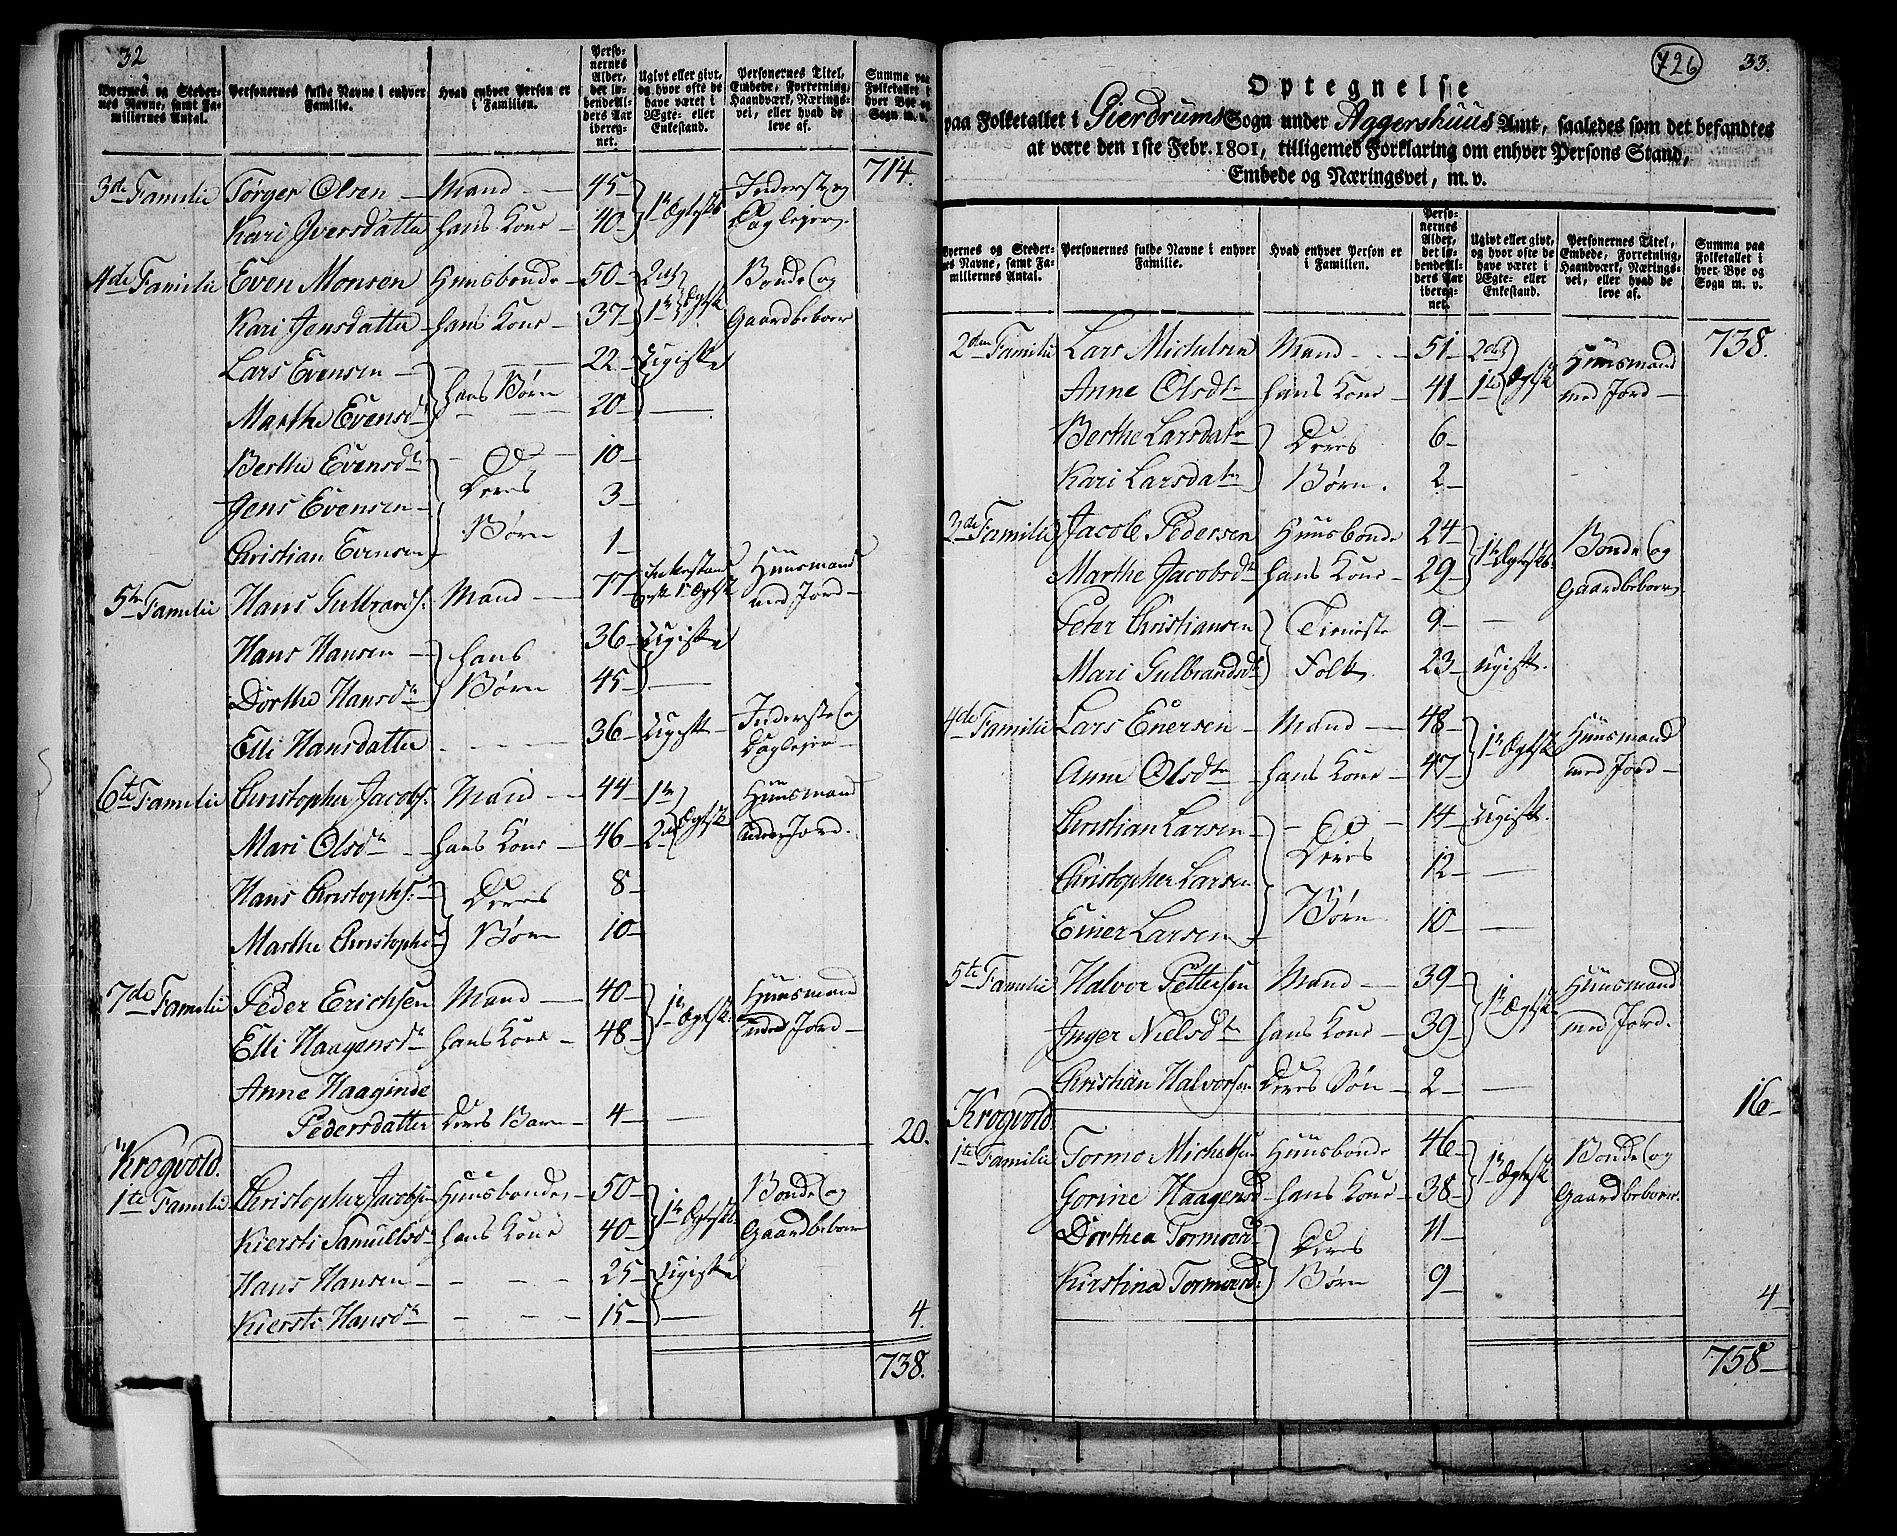 32
Byernes og Steder-
nes Navne, samt Fa-
miliernes Antal.
Personernes fulde Navne i enhver
Familie.
Hvad enhver Person er
i Familien.
Perso-
nernes
Alder,
det lø-
bende Al-
ders Aar
ibereg-
net.
Ugivt eller givt,
og hvor ofte de
have været i
Ægte- eller
Enkestand.
Personernes Titel,
Embede, Forretning,
Haandværk, Nærings-
vei, eller hvad de
leve af.
Summa paa
Folketallet i
hver Bye og
Sogn m. v.
714.
3de Familie Torger Olsen Mand 45 1te Ægtesk. Inderste og
Kari Iversdatter hans Kone 40 Daglejer
4de Familie Even Monsen Huusbonde 50 2det Bonde og
Kari Jensdatter hans Kone 37 1te Ægtsk. Gaardbeboer
Lars Evensen 22 Ugifte
Marthe Evensdr hans Børn 20
Berthe Evensdr 10
Jens Evensen Deres 3
Christian Evensen Børn 1
5te Familie Hans Gulbrands: Mand 77 Enkestand 1te Ægtsk. Huusmand
med Jord
Hans Hansen hans 36 Ugifte
Dorthe Hansdr Børn 45
Elli Hansdatter 36 Ugift Inderste og
Daglejer
6te Familie Christopher Jacobs: Mand 44 1te Huusmand
Mari Olsdr hans Kone 46 2det Ægtsk. Jord.
Hans Christophs: Deres 8
Marthe Christophs Børn 10
7de Familie Peder Erichsen Mand 40 1te Ægtsk. Huusmand
Elli Haagensdr hans Kone 48 med Jord
Anne Haaginde
Pedersdatter Deres Barn 4 20.
Krogvold.
1te Familie Christopher Jacobs: Huusbonde 50 1te Ægtesk. Bonde og
Kiersti Samuelsd hans Kone 40 Gaardbeboer
Hans Hansen 25 Ugifte
Kiersti Hansdr 15 4.
738.
726
33.
Optegnelse
paa Folketallet i Gierdrums Sogn under Aggershuus Amt, saaledes som det befandtes
at være den 1ste Febr. 1801, tilligemed Forklaring om enhver Persons Stand,
Embede og Næringsvei, m. v.
Byernes og Steder-
nes Navne, samt Fa-
miliernes Antal.
Personernes fulde Navne i enhver
Familie.
Hvad enhver Person er
i Familien.
Perso-
nernes
Alder,
det lø-
bende Al-
ders Aar
ibereg-
net.
Ugivt eller givt,
og hvor ofte de
have været i
Ægte- eller
Enkestand.
Personernes Titel,
Embede, Forretning,
Haandværk, Nærings-
vei, eller hvad de
leve af.
Summa paa
Folketallet i
hver Bye og
Sogn m. v.
2den Familie Lars Michelsen Mand 51 2det Huusmand 738.
Anne Olsdtr hans Kone 41 1te Ægtsk med Jord
Berthe Larsdatr Deres 6
Kari Larsdatr Børn. 2
3de Familie Jacob Pedersen Huusbonde 24 1te Ægtesk. Bonde og
Marthe Jacobsdtr hans Kone 29 Gaardbeboer
Peter Christiansen Tieniste 9
Mari Gulbrandsdr Folk 23 ugift.
4de Familie Lars Enersen Mand 48 1te Ægtsk Huusmand
Anne Olsdtr hans Kone 47 med Jord
Christian Larsen 14 Ugift.
Christopher Larsen Deres 12
Einer Larsen Børn 10
5te Familie Halvor Pettersen Mand 39 1te Ægtsk. Huusmand
Inger Nielsdtr hans Kone 39 med Jord.
Christian Halvorsen Deres Søn 2 16
Krogvold.
1te Familie Tormo Michelsen Huusbonde 46 1te Ægtsk Bonde og
Gorine Haagensd hans Kone 38 Gaardbeboer.
Dorthea Tormoesd Deres 11
Kirstina Tormoesd: Børn 9 4
758